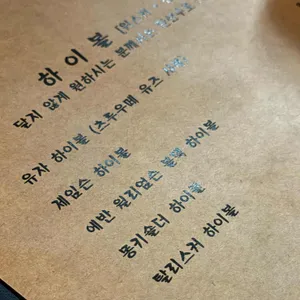 하이볼 [위스키
달지 않게 원하시는 분께서는
유자 하이볼 (츠루우메 유즈
제임슨 하이볼
에반 윌리엄스 블랙 하이볼
몽키숄더 하이볼
탈리스커 하이볼